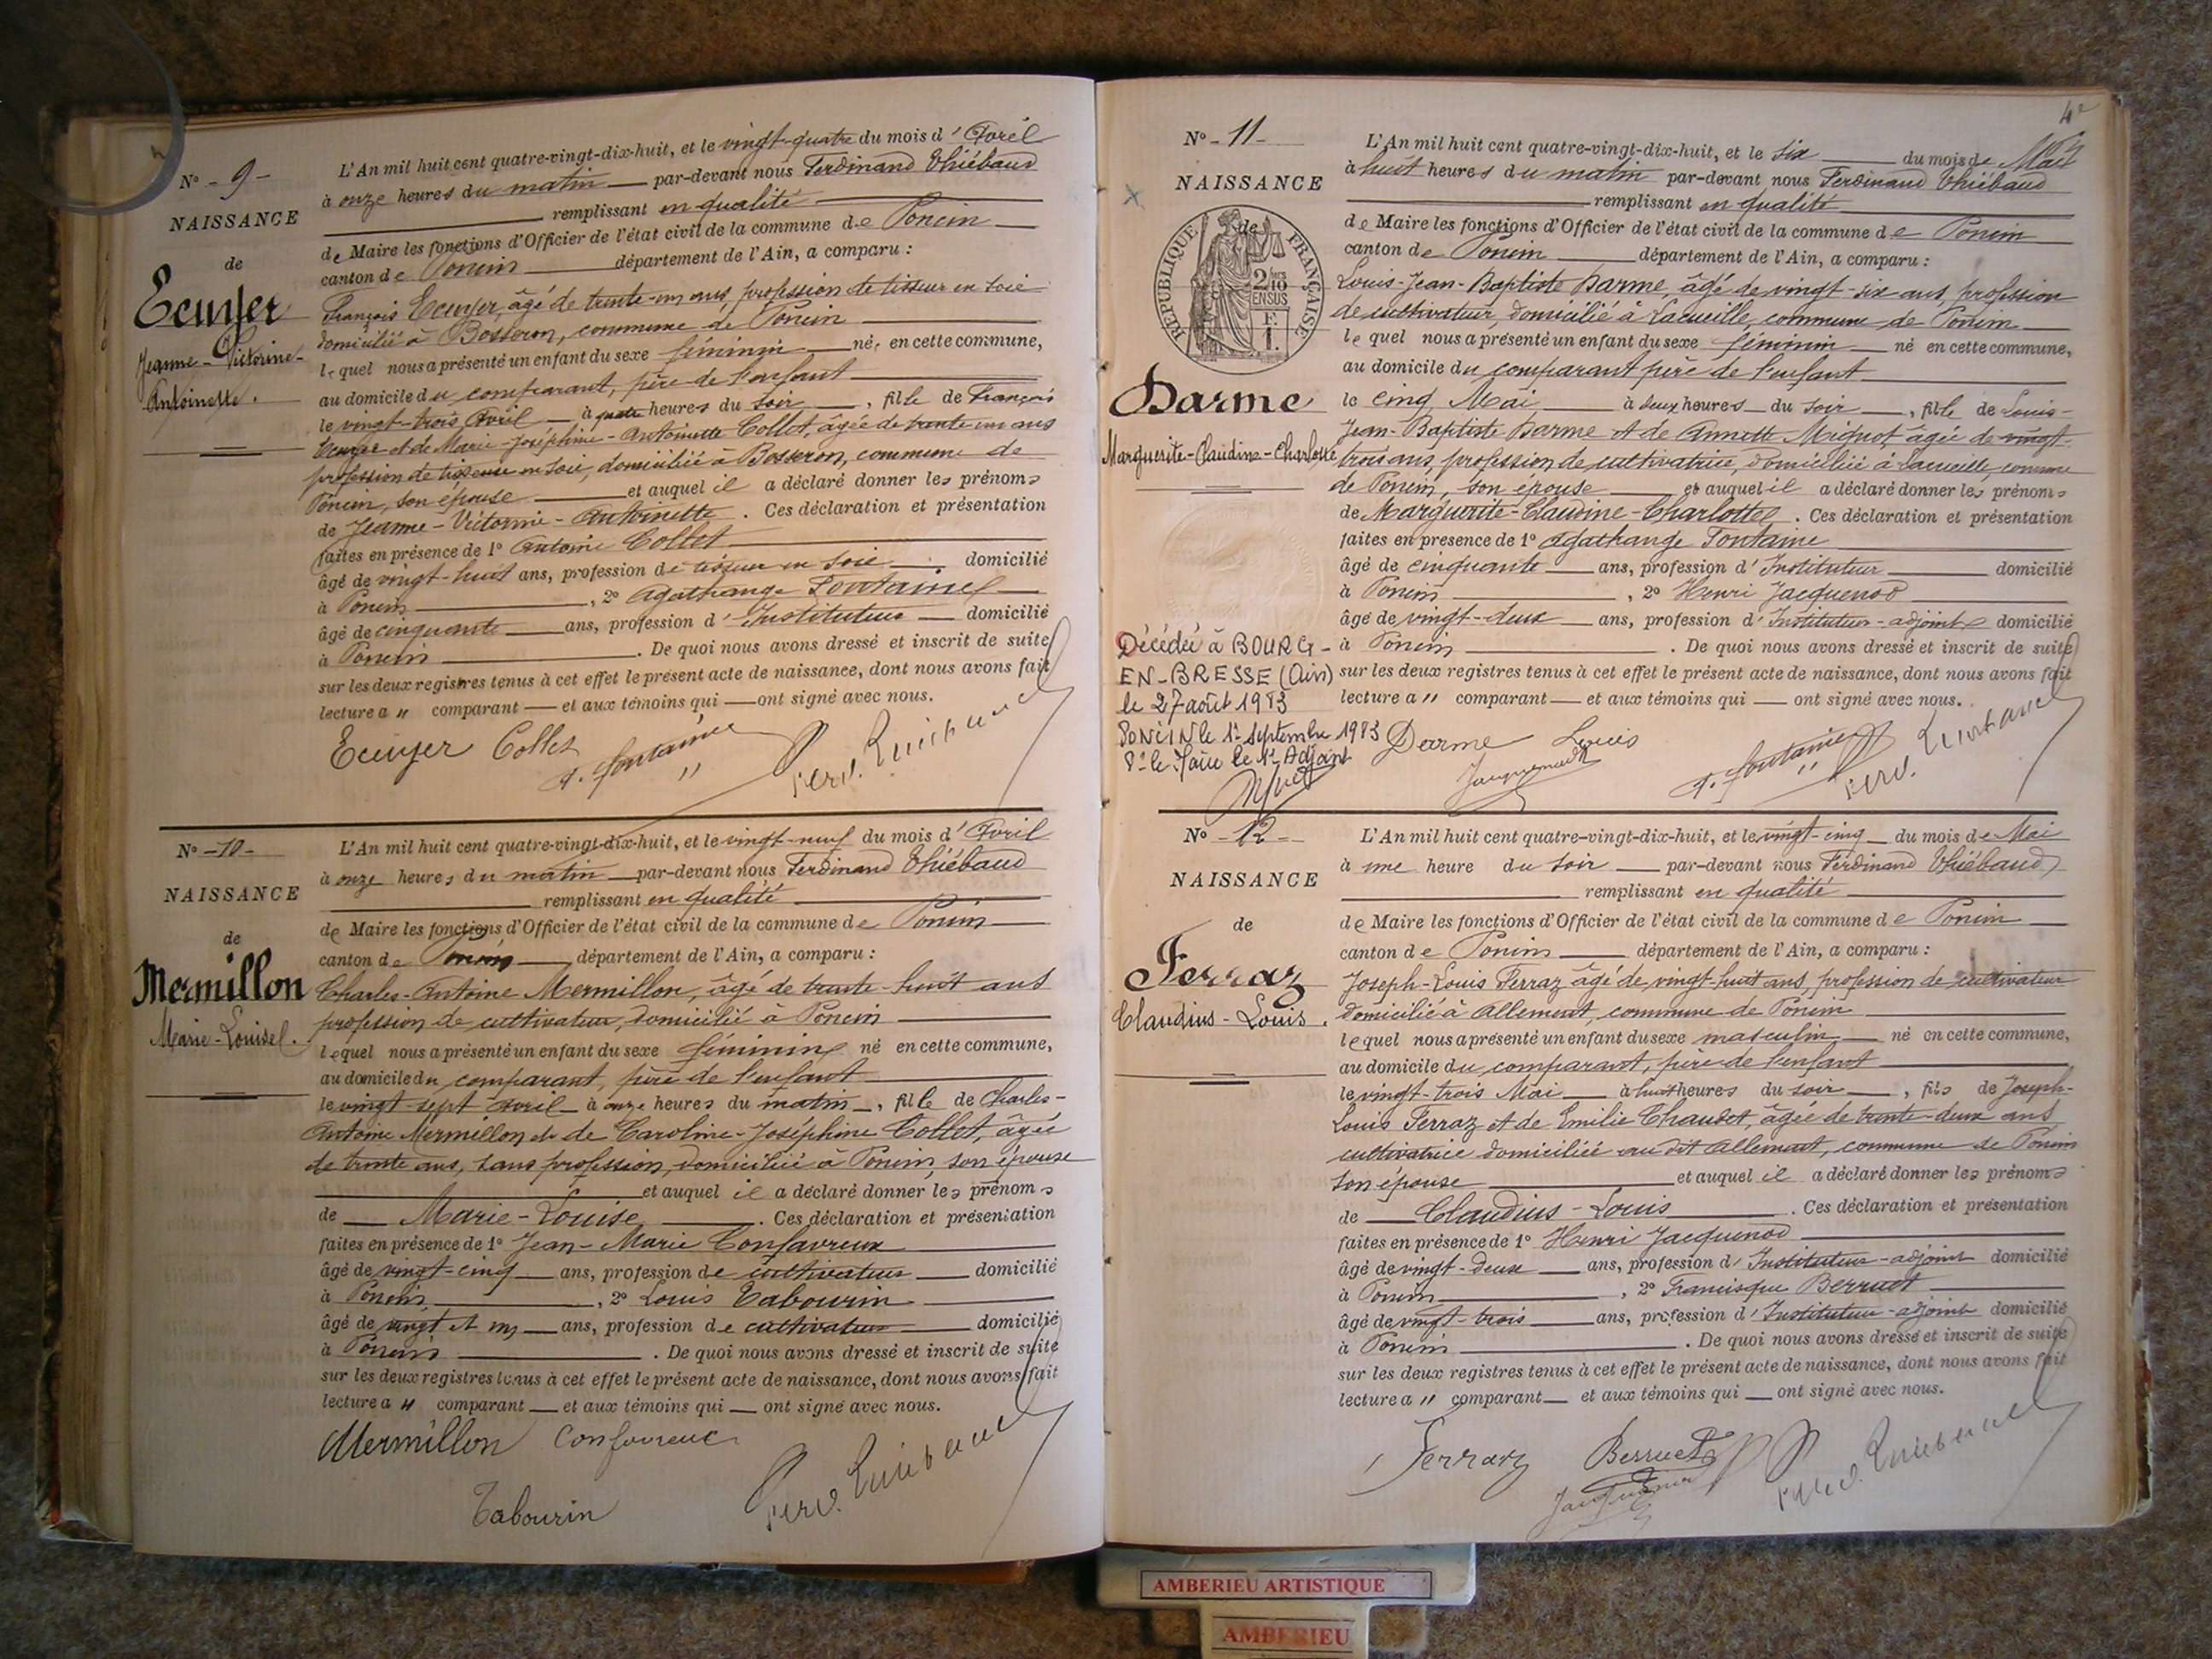 N° - 9 -
NAISSANCE
de
Ecuyer
Jeanne-Victorine-
Antoinette.
L'An mil huit cent quatre-vingt-dix-huit, et le vingt-quatre du mois d'Avril
à onze heures du matin par-devant nous Ferdinand Thiébaud
remplissant en qualité
de Maire les fonctions d'Officier de l'état civil de la commune de Poncin
canton de Poncin département de l'Ain, a comparu :
François Ecuyer, âgé de trente-un ans, profession de tisseur en soie
domicilié à Bosseron, commune de Poncin
lequel nous a présenté un enfant du sexe féminin né, en cette commune,
au domicile du comparant, père de l'enfant
le vingt-trois Avril à heures du soir, fille de François
Ecuyer et de Marie-Joséphine-Antoinette Collet, âgée de trente un ans
profession de tisseuse en soie, domiciliée à Bosseron, commune de
Poncin, son épouse et auquel il a déclaré donner les prénoms
de Jeanne-Victorine-Antoinette. Ces déclaration et présentation
faites en présence de 1° Antoine Collet
âgé de vingt-huit ans, profession de tisseur en soie domicilié
à Poncin, 2° Agathange Fontaine
âgé de cinquante ans, profession d'Instituteur domicilié
à Poncin. De quoi nous avons dressé et inscrit de suite
sur les deux registres tenus à cet effet le présent acte de naissance, dont nous avons fait
lecture a " comparant et aux témoins qui ont signé avec nous.
Ecuyer Collet A. Fontaine Ferd. Thiébaud
N° - 10 -
NAISSANCE
de
Mermillon
Marie-Louise.
L'An mil huit cent quatre-vingt-dix-huit, et le vingt-neuf du mois d'Avril
à onze heures du matin par-devant nous Ferdinand Thiébaud
remplissant en qualité
de Maire les fonctions d'Officier de l'état civil de la commune de Poncin
canton de Poncin, département de l'Ain, a comparu :
Charles-Antoine Mermillon, âgé de trente-huit ans
profession de cultivateur, domicilié à Poncin
lequel nous a présenté un enfant du sexe féminin né en cette commune,
au domicile du comparant, père de l'enfant
le vingt-sept Avril à onze heures du matin, fille de Charles-
Antoine Mermillon et de Caroline-Joséphine Collet, âgée
de trente ans, sans profession, domiciliée à Poncin, son épouse
et auquel il a déclaré donner les prénoms
de Marie-Louise. Ces déclaration et présentation
faites en présence de 1° Jean-Marie Confavreux
âgé de vingt-cinq ans, profession de cultivateur domicilié
à Poncin, 2° Louis Tabourin
âgé de vingt et un ans, profession de cultivateur domicilié
à Poncin. De quoi nous avons dressé et inscrit de suite
sur les deux registres tenus à cet effet le présent acte de naissance, dont nous avons fait
lecture a " comparant et aux témoins qui ont signé avec nous.
Mermillon Confavreux
Tabourin Ferd. Thiébaud
4e
N° - 11 -
NAISSANCE
de
RÉPUBLIQUE FRANÇAISE
2/10 EN SUS
F. 1.
Darme
Marguerite-Claudine-Charlotte
Décédée à BOURG-
EN-BRESSE (Ain)
le 27 août 1983
PONCIN le 1er Septembre 1983
Pr le Maire le 1er Adjoint
L'An mil huit cent quatre-vingt-dix-huit, et le six du mois de Mai
à huit heures du matin par-devant nous Ferdinand Thiébaud
remplissant en qualité
de Maire les fonctions d'Officier de l'état civil de la commune de Poncin
canton de Poncin département de l'Ain, a comparu :
Louis-Jean-Baptiste Darme, âgé de vingt-six ans, profession
de cultivateur, domicilié à Lacueille, commune de Poncin
lequel nous a présenté un enfant du sexe féminin né en cette commune,
au domicile du comparant père de l'enfant
le cinq Mai à deux heures du soir, fille de Louis-
Jean-Baptiste Darme et de Annette Mignot âgée de vingt-
trois ans, profession de cultivatrice, domiciliée à Lacueille, commune
de Poncin, son épouse et auquel il a déclaré donner les prénoms
de Marguerite-Claudine-Charlotte. Ces déclaration et présentation
faites en présence de 1° Agathange Fontaine
âgé de cinquante ans, profession d'Instituteur domicilié
à Poncin, 2° Henri Jacquenod
âgé de vingt-deux ans, profession d'Instituteur-adjoint domicilié
à Poncin. De quoi nous avons dressé et inscrit de suite
sur les deux registres tenus à cet effet le présent acte de naissance, dont nous avons fait
lecture a " comparant et aux témoins qui ont signé avec nous.
Darme Louis
Jacquenod A. Fontaine Ferd. Thiébaud
N° - 12 -
NAISSANCE
de
Ferraz
Claudius-Louis.
L'An mil huit cent quatre-vingt-dix-huit, et le vingt-cinq du mois de Mai
à une heure du soir par-devant nous Ferdinand Thiébaud
remplissant en qualité
de Maire les fonctions d'Officier de l'état civil de la commune de Poncin
canton de Poncin département de l'Ain, a comparu :
Joseph-Louis Ferraz âgé de vingt-huit ans, profession de cultivateur
domicilié à Allement, commune de Poncin
lequel nous a présenté un enfant du sexe masculin né en cette commune,
au domicile du comparant, père de l'enfant
le vingt-trois Mai à huit heures du soir, fils de Joseph-
Louis Ferraz et de Emilie Chaudet, âgée de trente-deux ans
cultivatrice domiciliée au dit Allement, commune de Poncin
son épouse et auquel il a déclaré donner les prénoms
de Claudius-Louis. Ces déclaration et présentation
faites en présence de 1° Henri Jacquenod
âgé de vingt-deux ans, profession d'Instituteur-adjoint domicilié
à Poncin, 2° Francisque Berruet
âgé de vingt-trois ans, profession d'Instituteur-adjoint domicilié
à Poncin. De quoi nous avons dressé et inscrit de suite
sur les deux registres tenus à cet effet le présent acte de naissance, dont nous avons fait
lecture a " comparant et aux témoins qui ont signé avec nous.
Ferraz Berruet
Jacquenod Ferd. Thiébaud
AMBERIEU ARTISTIQUE
AMBERIEU